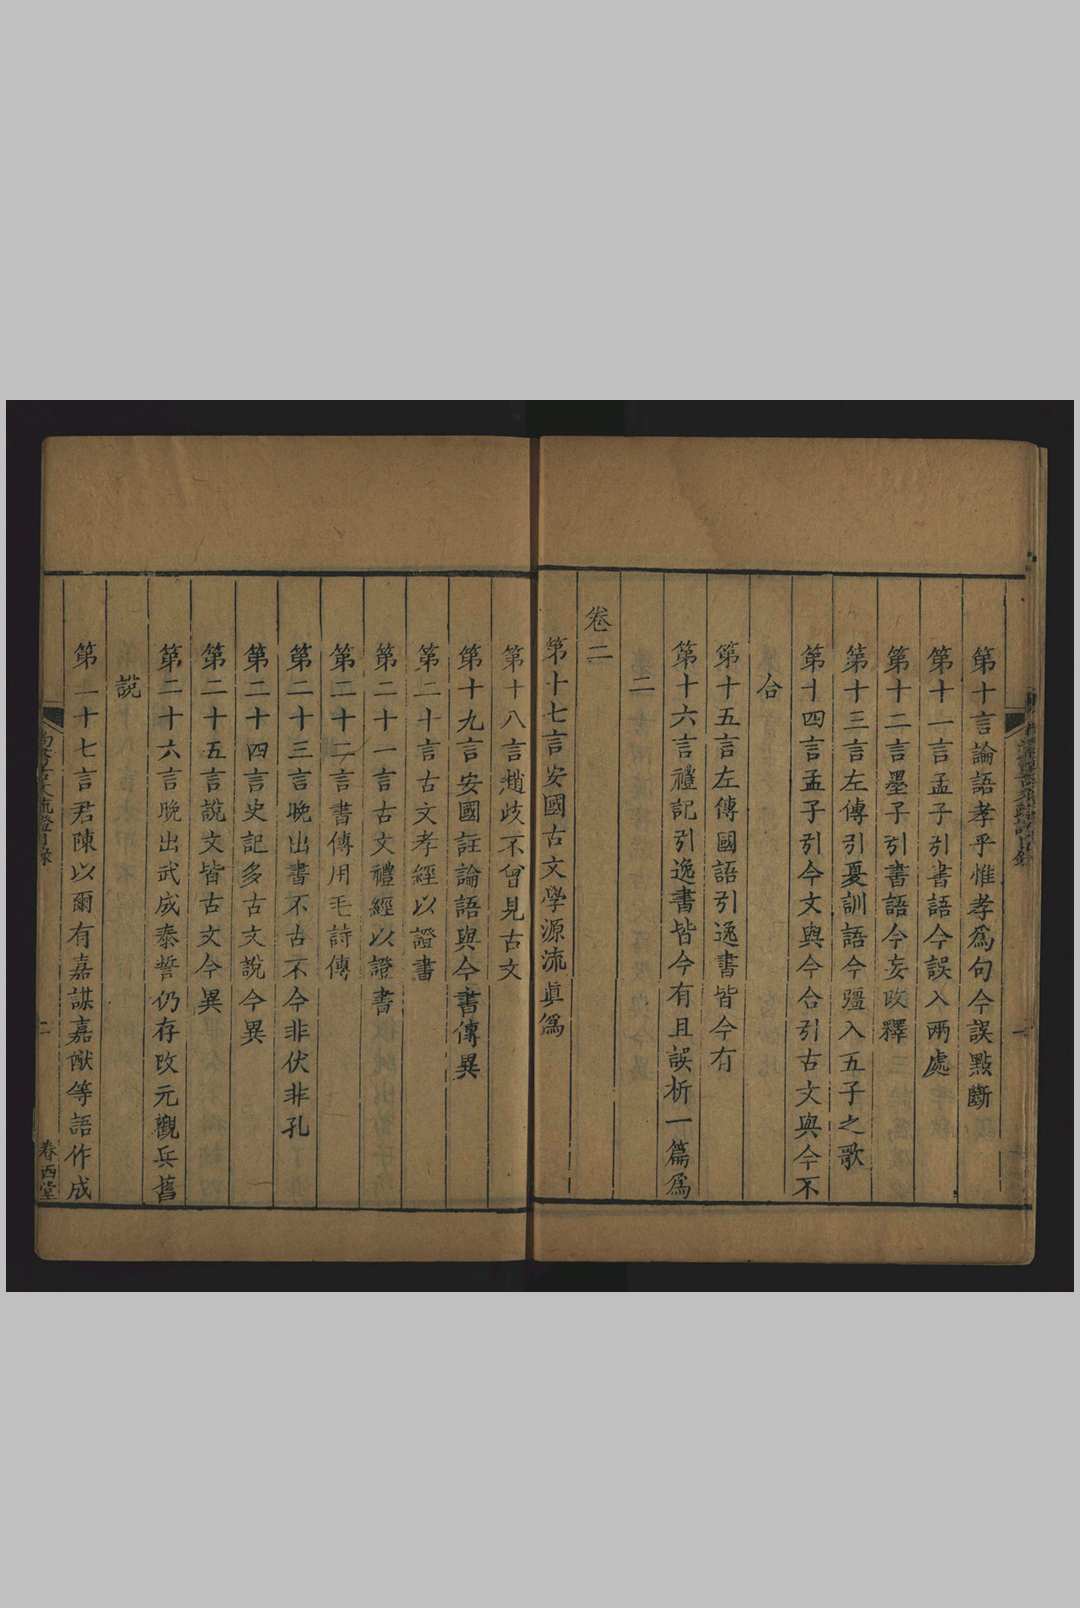 第十言論語孝乎惟孝爲句今誤點斷
第十一言孟子引書語今誤入兩處
第十二言墨子引書語今妄改釋
第十三言左傳引夏訓語今彊入五子之歌
第十四言孟子引今文與今合引古文與今不
合
第十五言左傳國語引逸書皆今有
第十六言禮記引逸書皆今有且誤析一篇爲
二
卷二
第十七言安國古文學源流眞僞
第十八言趙岐不曾見古文
第十九言安國註論語與今書傳異
第二十言古文孝經以證書
第二十一言古文禮經以證書
第二十二言書傳用毛詩傳
第二十三言晚出書不古不今非伏非孔
第二十四言史記多古文說今異
第二十五言說文皆古文今異
第二十六言晚出武成泰誓仍存改元觀兵舊
說
第二十七言君陳以爾有嘉謀嘉猷等語作成
尚書古文疏證目錄
二
眷西堂